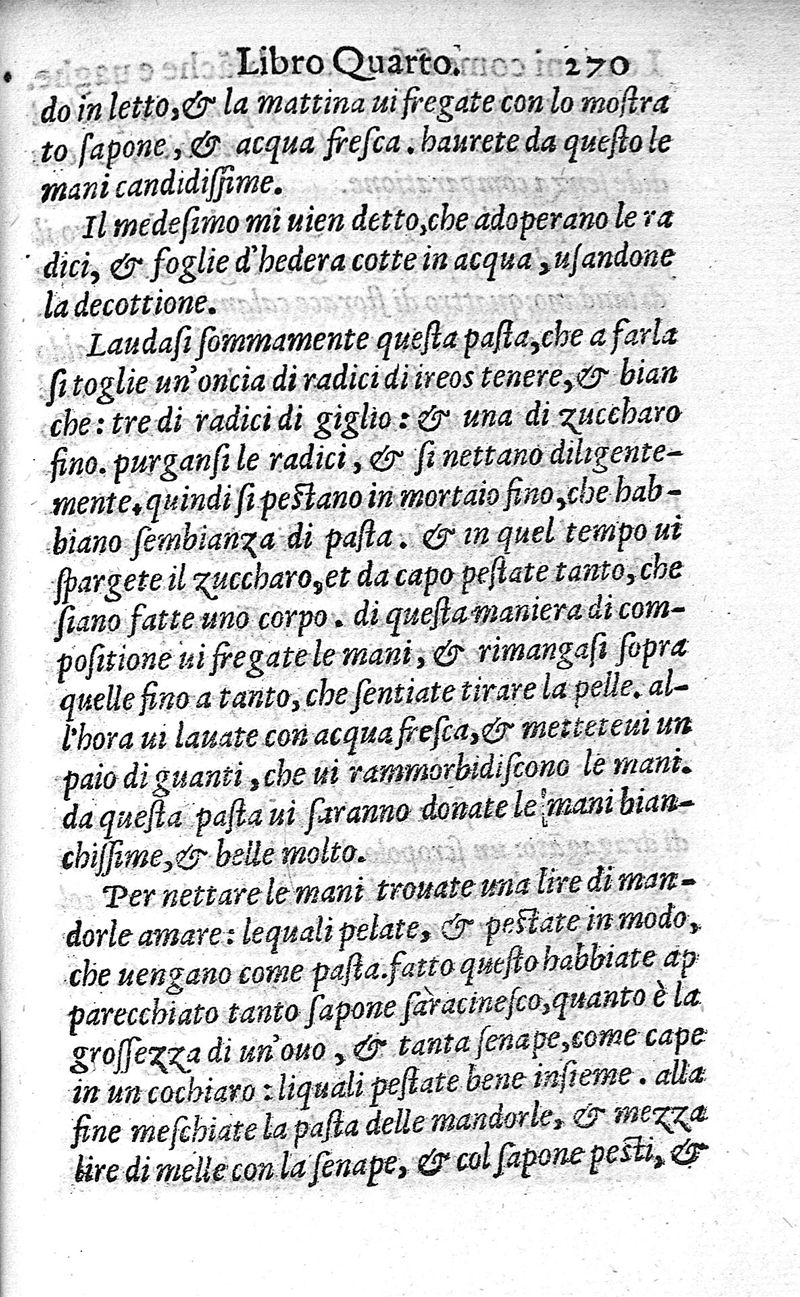 Libro Quarto. 270
do in letto, & la mattina ui fregate con lo moſtra
to ſapone, & acqua freſca. haurete da queſto le
mani candidiſſime.
Il medeſimo mi uien detto, che adoperano le ra
dici, & foglie d'hedera cotte in acqua, uſandone
la decottione.
Laudaſi ſommamente queſta paſta, che a farla
ſi toglie un'oncia di radici di ireos tenere, & bian
che: tre di radici di giglio: & una di zuccharo
fino. purganſi le radici, & ſi nettano diligente-
mente. quindi ſi peſtano in mortaio fino, che hab-
biano ſembianza di paſta. & in quel tempo ui
ſpargete il zuccharo, et da capo peſtate tanto, che
ſiano fatte uno corpo. di queſta maniera di com-
poſitione ui fregate le mani, & rimangaſi ſopra
quelle fino a tanto, che ſentiate tirare la pelle. al-
l'hora ui lauate con acqua freſca, & metteteui un
paio di guanti, che ui rammorbidiſcono le mani.
da queſta paſta ui ſaranno donate le mani bian-
chiſſime, & belle molto.
Per nettare le mani trouate una lire di man-
dorle amare: lequali pelate, & peſtate in modo,
che uengano come paſta. fatto queſto habbiate ap
parecchiato tanto ſapone ſaracineſco, quanto è la
groſſezza di un'ouo, & tanta ſenape, come cape
in un cochiaro: liquali peſtate bene inſieme. alla
fine meſchiate la paſta delle mandorle, & mezza
lire di melle con la ſenape, & col ſapone peſti, &